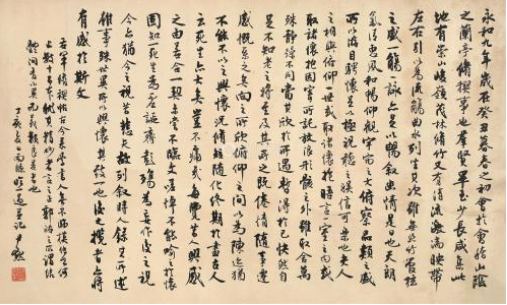 永和九年歲在癸丑暮春之初會於會稽山陰
之蘭亭脩禊事也羣賢畢至少長咸集此
地有崇山峻領茂林脩竹又有清流激湍映帶
左右引以為流觴曲水列坐其次雖無絲竹管絃
之盛一觴一詠亦足以暢叙幽情是日也天朗
氣清惠風和暢仰觀宇宙之大俯察品類之盛
所以遊目騁懷足以極視聽之娛信可樂也夫人
之相與俯仰一世或取諸懷抱晤言一室之內或
取諸懷抱因寄所託放浪形骸之外雖取舍萬
殊靜躁不同當其欣於所遇暫得於己快然自
足不知老之將至及其所之既惓情隨事遷
感慨係之矣向之所欣俛仰之間以為陳迹猶
不能不以之興懷況脩短隨化終期於盡古人
云死生亦大矣豈不痛哉每攬昔人興感
之由若合一契未嘗不臨文嗟悼不能喻之於懷
固知一死生為虛誕齊彭殤為妄作後之視
今亦猶今之視昔悲夫故列叙時人錄其所述
雖事殊世異所以興懷其致一也後之攬者亦將
有感於斯文
右軍脩禊帖古今
尹默